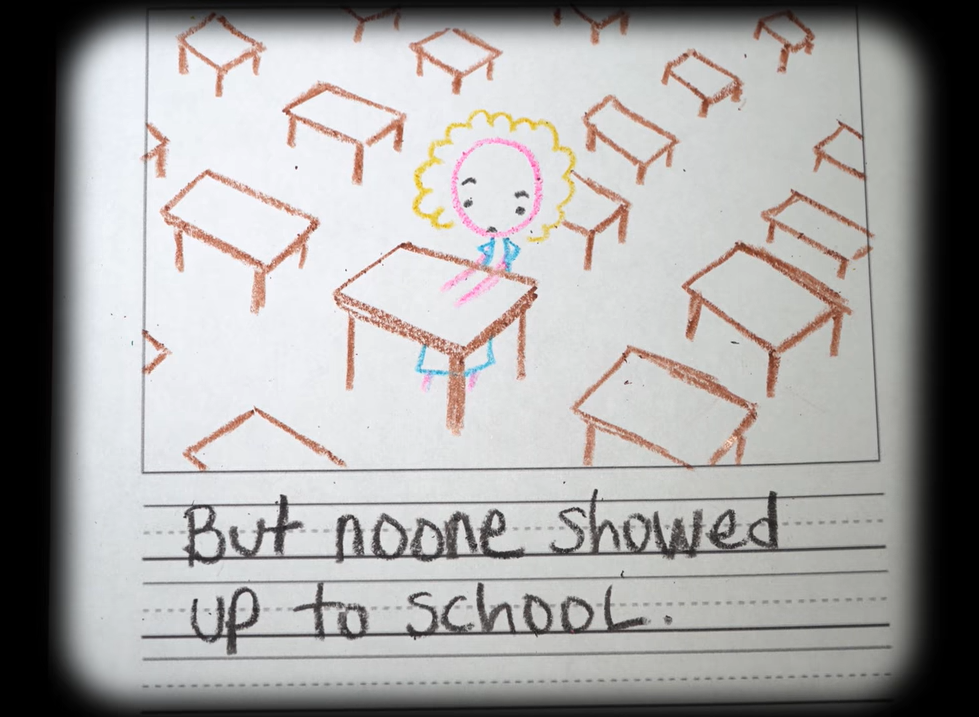 But noone showed
up to school.